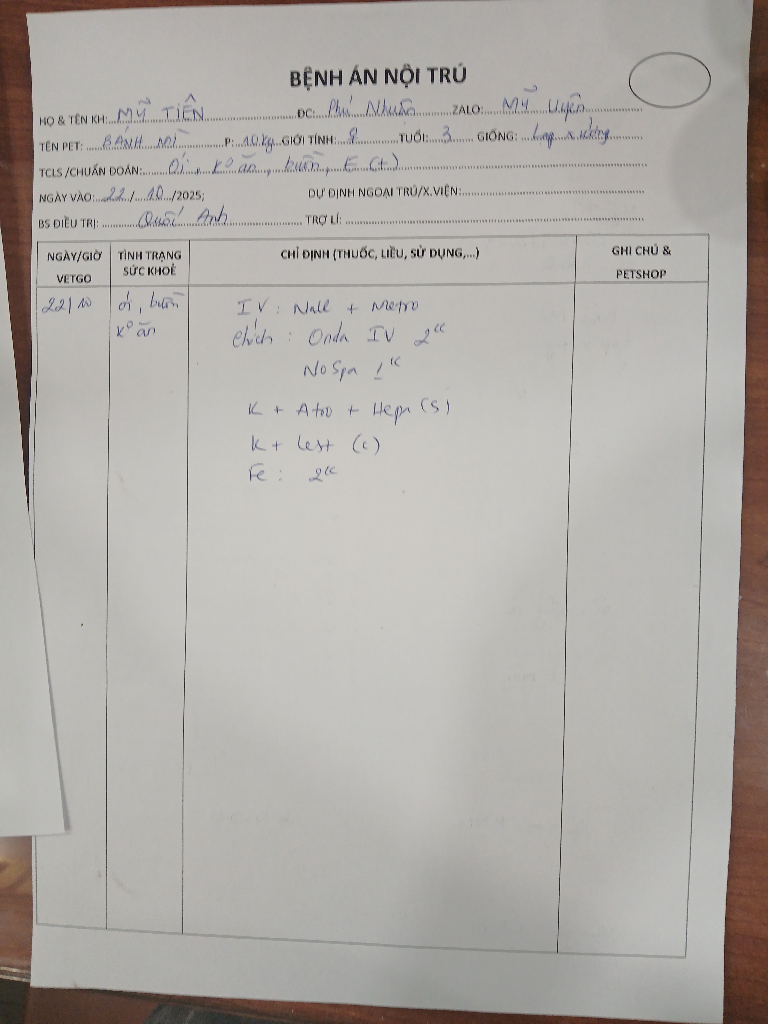 BỆNH ÁN NỘI TRÚ
HỌ & TÊN KH: MỸ TIÊN ĐC: Phú Nhuận ZALO: Mỹ Uyên
TÊN PET: BÁNH MÌ P: 10kg GIỚI TÍNH: TUỔI: 3 GIỐNG: Lạp xưởng
TCLS /CHUẨN ĐOÁN: Ói, K° ăn, buồn, E (+)
NGÀY VÀO: 22 / 10 /2025; DỰ ĐỊNH NGOẠI TRÚ/X.VIỆN:
BS ĐIỀU TRỊ: Quốc Anh TRỢ LÍ:
NGÀY/GIỜ VETGO
TÌNH TRẠNG SỨC KHOẺ
CHỈ ĐỊNH (THUỐC, LIỀU, SỬ DỤNG,...)
GHI CHÚ & PETSHOP
22/10
ói, buồn
K° ăn
IV: Nacl + Metro
chích: Onda IV 2cc
NoSpa 1cc
K + Ato + Hepa (S)
K + (c)
Fe: 2cc